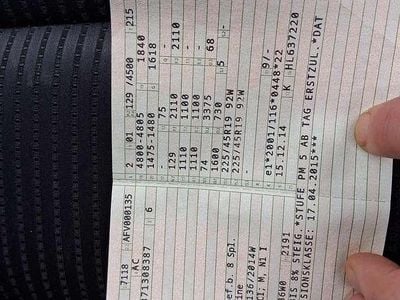 7118 AFV000135
AC
71308387 6
2 01 129 /4500 215
4800-4805 1840
1475-1480 1618
- 75
129 2110 - 2110
1110 1100 -
1110 1100 -
74 3375 68
1600 730 5 -
225/45R19 92W
225/45R19 92W
-
e1*2001/116*0448*22
15.12.14 K HL637220
ef.b. 8 Spl.
136/2014W
CI; M, N1 I
2191
IS 8% STEIG.*STUFE PM 5 AB TAG ERSTZUL.*DAT
SIONSKLASSE: 17.04.2015***